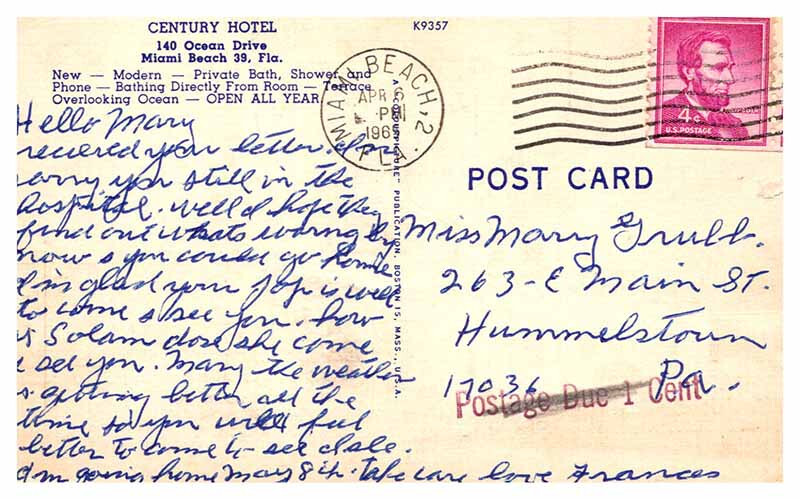 CENTURY HOTEL
140 Ocean Drive
Miami Beach 39, Fla.
New — Modern — Private Bath, Shower and
Phone — Bathing Directly From Room — Terrace
Overlooking Ocean — OPEN ALL YEAR
K9357
MIAMI BEACH, 2.
APR 6
PM
196
FLA.
4¢
U.S. POSTAGE
POST CARD
Hello Mary
recieved your letter. Im
sorry you still in the
hospital. well I hope they
find out whats wrong by
now s you could go home
I'm glad your is well
to come s see you. how
is dose she come
s see you. Mary the weather
is getting better all the
time so you will feel
better to come to see
I'm going home May 8th. take care love Frances
A "COLOURPICTURE" PUBLICATION, BOSTON 15, MASS., U.S.A.
Miss Mary Grubb.
263-E Main St.
Hummelstown
17036 Pa.
Postage Due 1 Cent